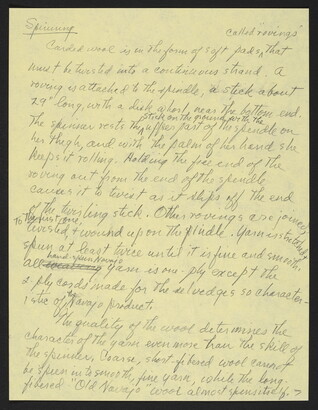 Spinning
called "rovings"
Carded wool is in the form of soft pads, that
must be twisted into a continuous strand. A
roving is attached to the spindle, a stick about
29" long, with a disk whorl near the bottom end.
stick on the ground, with the
The spinner rests the upper part of the spindle on
her thigh, and with the palm of her hand she
keeps it rolling. Holding the free end of the
roving out from the end of the spindle
causes it to twist as it slips off the end
of the twirling stick. Other rovings are joined,
to the first one,
twisted & wound upon the spindle. Yarn is stretched &
spun at least twice until it is fine and smooth.
hand spun Navajo
all yarn is one-ply except the
2 ply cords made for the selvedges so character-
istic of Navajo product.
The quality of the wool determines the
character of the yarn even more than the skill of
the spinner. Coarse, short-fibered wool cannot
be spun into smooth, fine yarn, while the long-
fibered "Old Navajo" wool almost spins itself. >